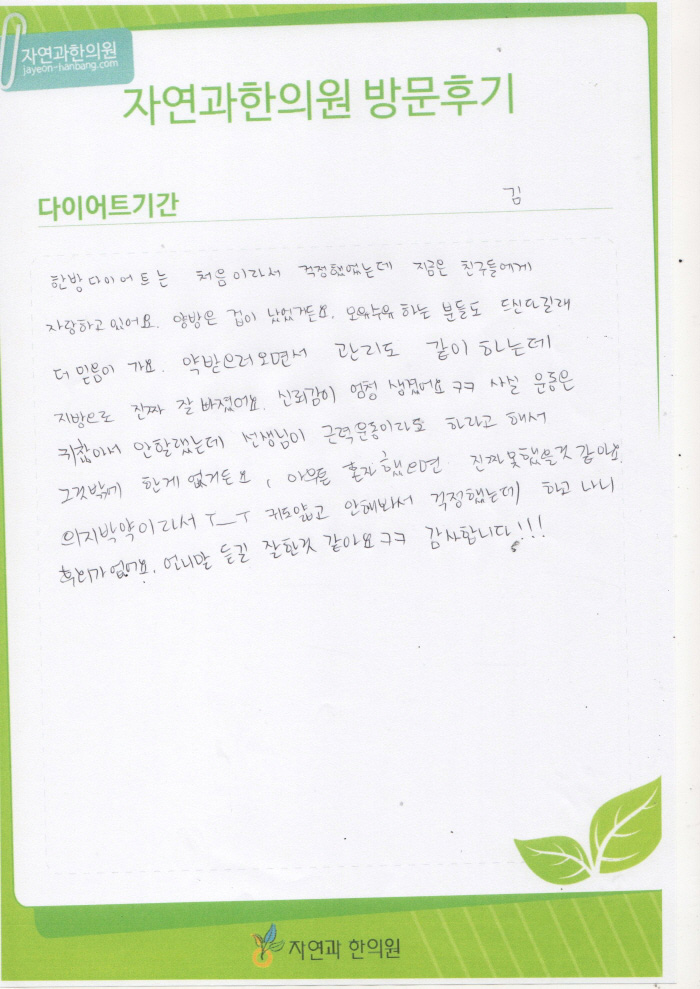 자연과한의원
jayeon-hanbang.com
자연과한의원 방문후기
다이어트기간
김
한방다이어트는 처음이라서 걱정했었는데 지금은 친구들에게
자랑하고있어요. 양방은 겁이 났었거든요. 모유수유하는 분들도 드신다길래
더 믿음이 가요. 약받으러오면서 관리도 같이 하는데
지방으로 진짜 잘 빠졌어요. 신뢰감이 엄청 생겼어요ㅋㅋ 사실 운동은
귀찮아서 안할랬는데 선생님이 근력운동이라도 하라고 해서
그것밖에 한게 없거든요, 아무튼 혼자했으면 진짜못했을것 같아요.
의지박약이라서 ㅜ_ㅜ 귀도얇고 안해봐서 걱정했는데 하고 나니
후회가없어요. 언니말 듣길 잘한것 같아요ㅋㅋ 감사합니다!!!
자연과 한의원